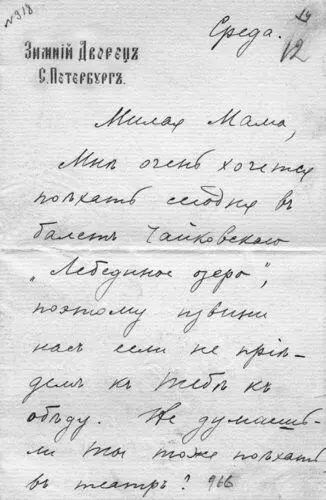 №318
19
Среда. 12
Зимній Дворецъ
С.Петербургъ.
Милая Мама,
Мнѣ очень хочется
поѣхать сегодня въ
балетъ Чайковскаго
„Лебединое озеро",
поэтому извини
насъ если не прiѣ-
демъ къ Тебѣ къ
обѣду. Не думаешь-
ли Ты тоже поѣхать
въ театръ? 966